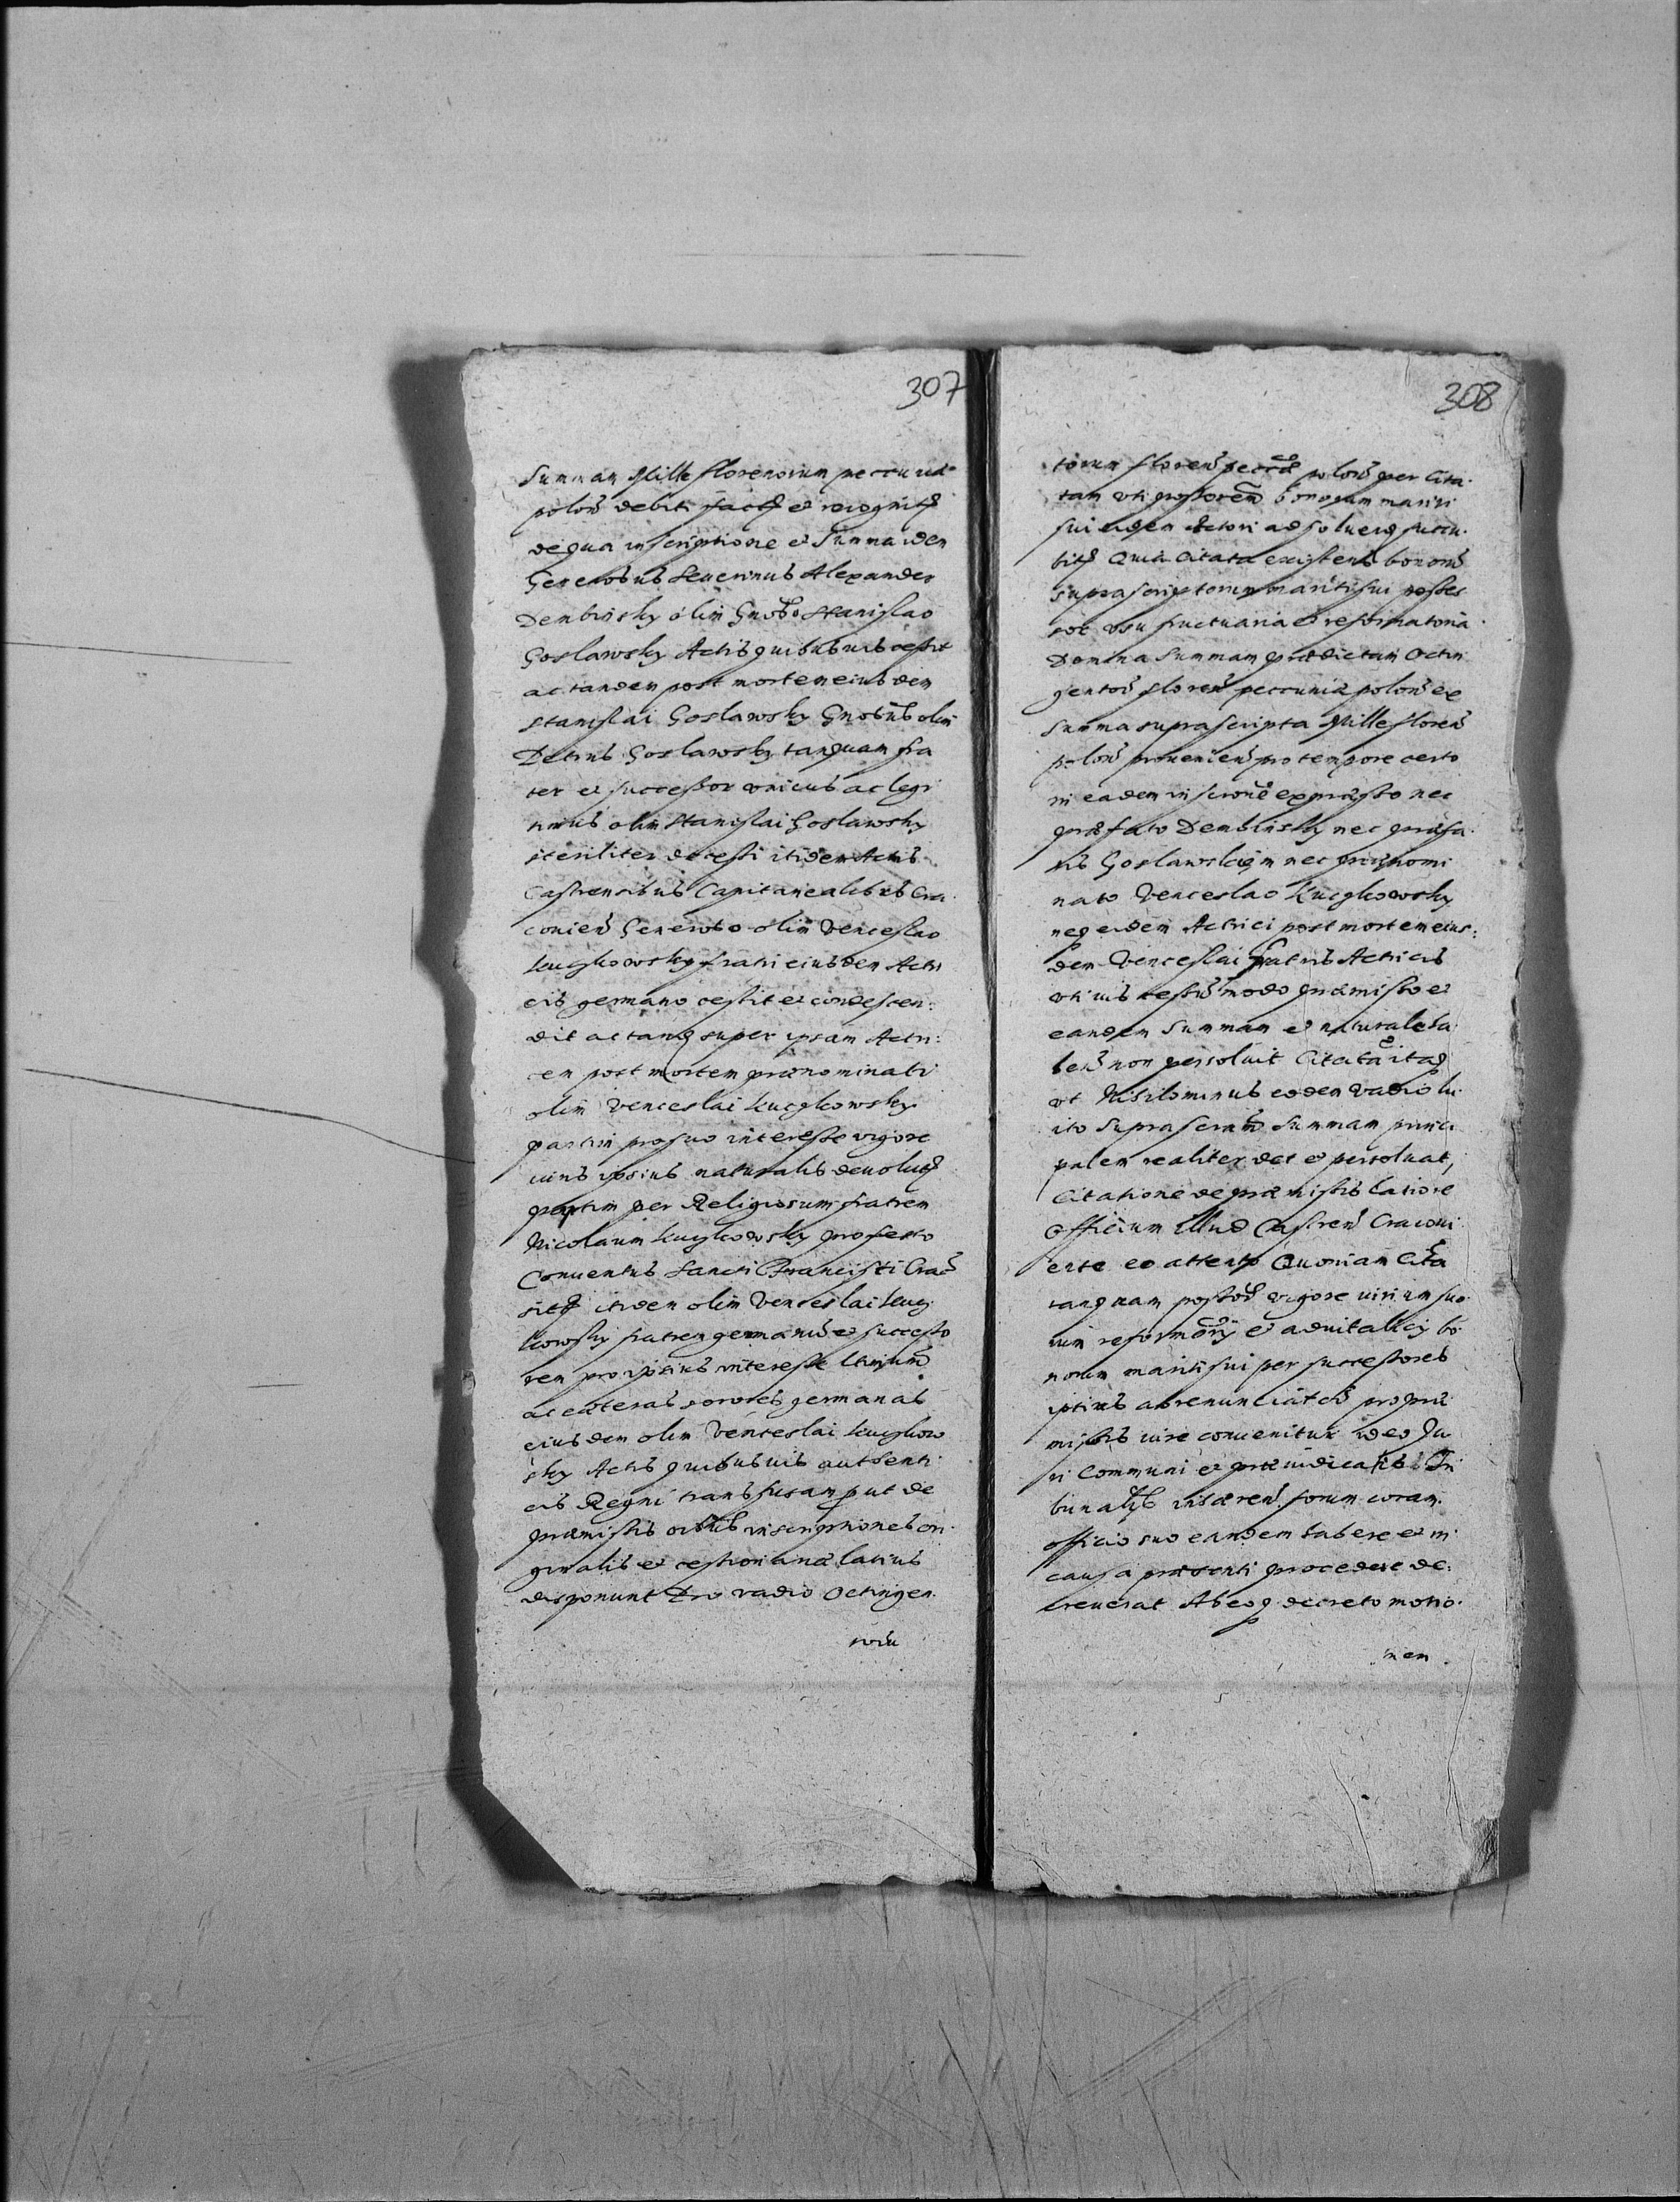 307
Summam Mille florenorum peccuniæ
polon debiti factæ et recognitæ
de qua inscriptione et Summa idem
Generosus Seuerinus Alexander
Dembinsky olim Gnoso Stanislao
Goslawsky Actis quibusuis cessit
ac tandem post mortem eiusdem
Stanislai Goslawsky Gnosus olim
Petrus Goslawsky tanquam fra
ter et successor vnicus ac legi
timus olim Stanislai Goslawsky
steriliter decessi itidem Actis
Castrensibus Capitanealibus Cra
couien Generoso olim Venceslao
Kuczkowsky fratri eiusdem Actri
cis germano cessit et condescen:
dit ac tandem super ipsam Actri:
cem post mortem prænominati
olim Venceslai Kuczkowsky
partim pro suo interesse vigore
iuris ipsius naturalis deuolutæ
partim per Religiosum fratrem
Nicolaum Kuczkowsky professo
Conuentus Sancti Francisci Crac
sitæ itidem olim Venceslai Kucz
kowsky fratrem germanū et successo
rem pro ipsius interesse
ac cæteras sorores germanas
eiusdem olim Venceslai Kuczkow
sky Actis quibusuis authenti
cis Regni transfusam put de
præmissis oibus inscriptiones ori
ginalis et cessionariæ latius
disponunt Pro vadio Octingen
torū
308
torum floren peccæ polon per Cita
tam vti possorem bonorum mariti
sui eidem Actori ad soluend succu
bitæ Quia Citata existens bonom
suprascriptorum mariti sui posses
sor vsu fructuaria et reformatoria
Domina Summam prædictam Octin
gentorū floren peccuniæ polon ex
Summa suprascripta Mille floren
polon prouenien pro tempore certo
in eadem inscrone expresso nec
præfato Dembinsky nec præfa
tis Goslawsciim nec prænomi
nato Venceslao Kuczkowsky
neq eidem Actrici post mortem eius:
dem Venceslai fratris Actricis
vti iuris cessū modo præmisso et
eandem Summam et naturale ha
ben non persoluit Citata itaq
vt Nihilominus eodem vadio lu
ito Suprascriptā Summam princi
palem realiter det et persoluat,
Citatione de præmissis latiore
Officium Illud Castren Cracoui
ente eo attento Quoniam Citta
tanquam possor vigore iurium suo
rum reformorij et aduitalicij bo
norum mariti sui per successores
ipsius abrenunciat pro præ
missis iure conuenitur ideo Ju
ri Communi et præiudicatis Tri
bunalib inhæren forum coram
officio suo eandem habere et in
causa præsenti procedere de:
creuerat Ab eoq decreto motio
nem